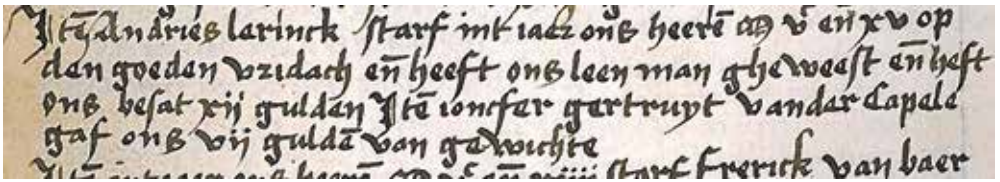 Itē Andries lerinck starf int iaer ons heerē M vᶜ en̄ xv op
den goeden vridach en̄ heeft ons leen man gheweest en̄ heft
ons besat xij gulden Itē ioncfer gertruyt vander Capele
gaf ons vij guldē van gewichte
Itē int iaer ons heerē M vᶜ en̄ xiiij starf frerick van baer